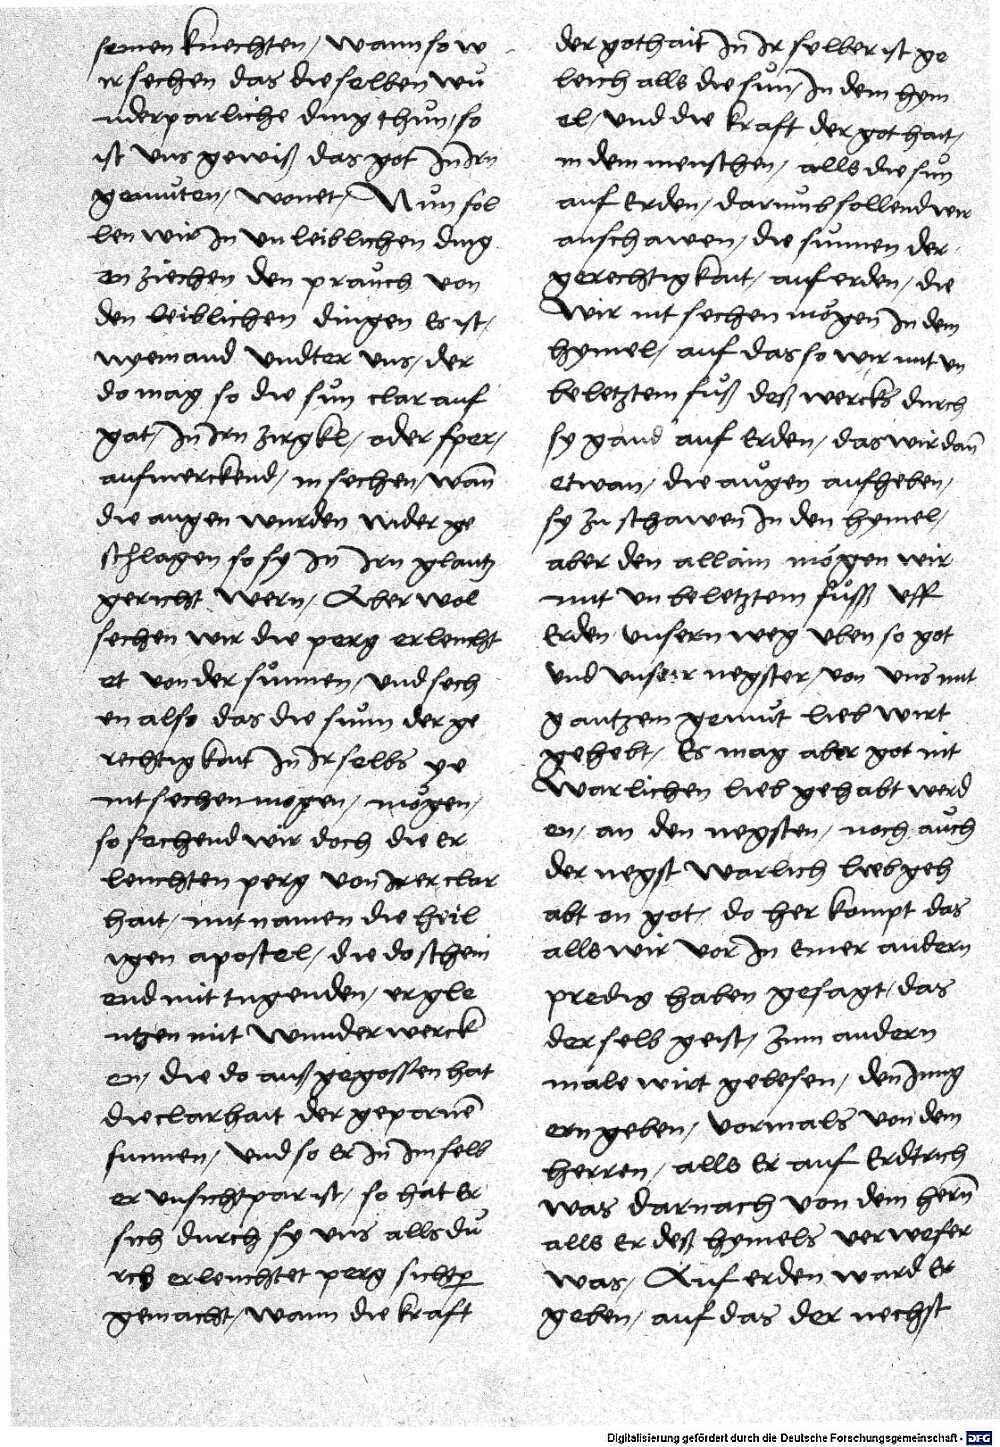 seinen knechten, wann so w
ir sechen das die selben wu
nderparliche ding thun, so
ist uns gewiß das got In Irn
gemuten, wonet, Nun sol
len wir In un leiblichen ding
en ziechen den prauch von
den leiblichen dingen Es ist,
nyemand undter uns, der
do mag so die sun clar auf
gat, In Irn zirgkl, oder sper,
aufmerckend, in sechen, wañ
die augen wurden nider ge
schlagen so sy In Irn glantz
gericht wern, Aber wol
sechen wir die perg erleucht
et von der sunnen, und sech
en also das die sunn der ge
rechtigkait In Ir selbs ye
nit sechen mogen, mogen,
so sechend wir doch die er
leuchten perg von Irer clar
hait, mit namen die heil
igen apostel, die do schein
end mit tugenden, ergle
ntzen mit wunderwerck
en, die do auß gegossen hat
die clarhait der gepornē
sunnen, und so Er In Im selb
er unsichtpar ist, so hat Er
sich durch sy uns alls du
rch erleuchtet perg sichtp
gemacht, wann die kraft
der gothait In Ir selber ist ge
leich alls die sun, In dem hym
el, und die kraft der gothait,
in dem menschen, alls die sun
auf Erden, darumb sollend wir
anschawen, die sunnen der
gerechtigkait, auf erden, die
wir nit sechen mögen In dem
hymel, auf das so wir mit un
beletztem fuß deß wercks durch
sy gand auf Erden, das wir dañ
etwan, die augen aufheben,
sy zu schawen In den hymel,
aber den allain mögen wir
mit un beletztem fuss uff
Erden unsern weg uben so got
und unser negster, von uns mit
gantzem gemut lieb wirt
gehebt, Es mag aber got nit
warlichen lieb gehabt werd
en, an den negsten, noch auch
der negst warlich lieb geh
abt on got, do her kompt das
alls wir vor In Einer andern
predig haben gesagt, das
der selb geist, zum andern
male wirt gelesen, den Jung
ern geben, vormals von dem
herren, alls Er auf Erdtrich
was darnach von dem herñ
alls Er deß hymels verweser
was, Auf erden ward Er
geben, auf das der nechst
Digitalisierung gefördert durch die Deutsche Forschungsgemeinschaft - DFG